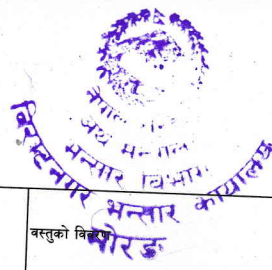 नेपाल
अर्थ मन्त्रालय
भन्सार विभाग
विराटनगर भन्सार कार्यालय
मोरङ
वस्तुको विवरण